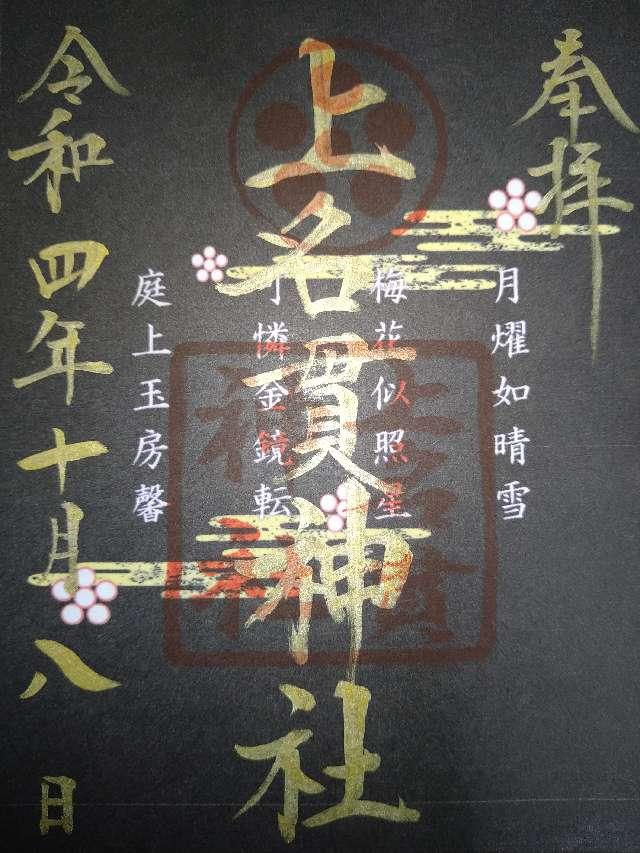 奉拝
月燿如晴雪
梅花似照星
上名貫神社
可憐金鏡転
庭上玉房馨
令和四年十月八日